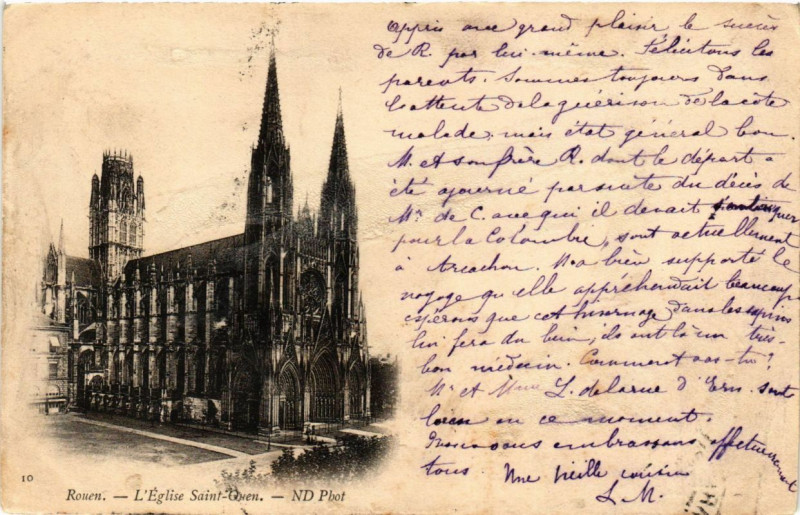 appris avec grand plaisir le succès
de R. par lui-même. Félicitons les
parents. Sommes toujours dans
l'attente de la guérison de la côte
malade, mais état général bon.
M. et son frère R. dont le départ a
été ajourné par suite du décès de
Mr. de C. avec qui il devait s'embarquer
pour la Colombie, sont actuellement
à Arcachon. M. a bien supporté le
voyage qu'elle appréhendait beaucoup
espérons que cet hivernage dans les sapins
lui fera du bien, ils ont là un très-
bon médecin. Comment vas-tu?
Mr et Mme L. delarue d' sont
bien en ce moment.
Nous vous embrassons affectueusement
tous. Une vieille cousine
L. M.
10
Rouen. — L'Église Saint-Ouen. — ND Phot